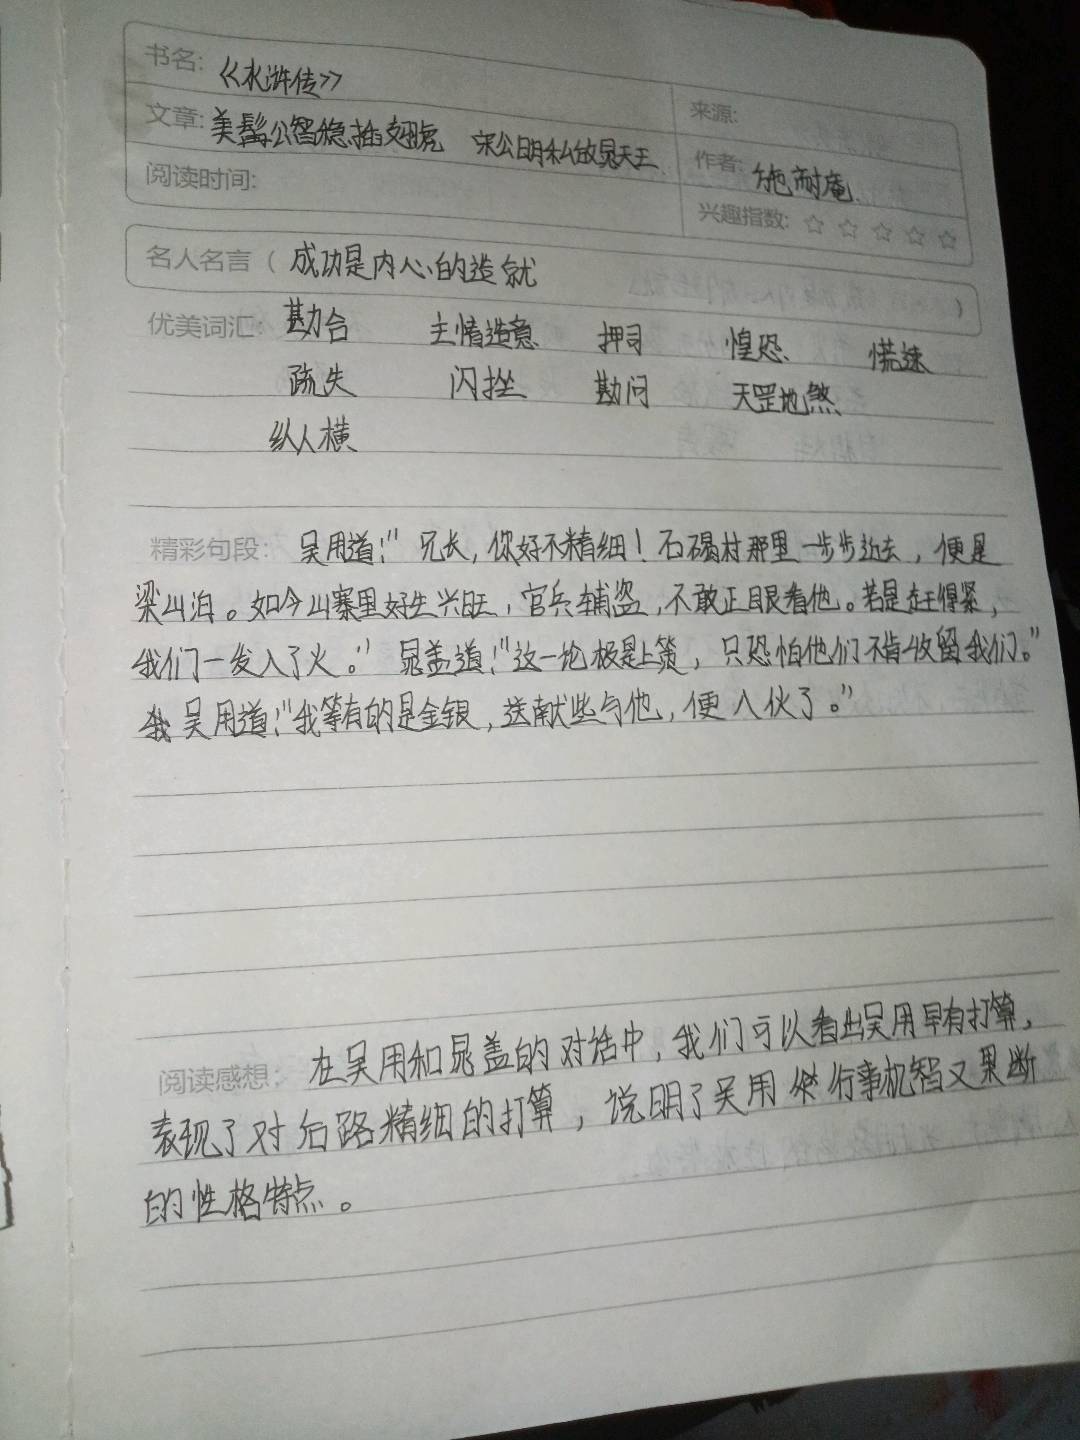 书名: 《水浒传》
来源:
文章: 美髯公智稳插翅虎 宋公明私放晁天王
作者: 施耐庵
阅读时间:
兴趣指数: ☆ ☆ ☆ ☆ ☆
名人名言 ( 成功是内心的造就 )
优美词汇: 勘合 主情造意 押司 惶恐 慌速
疏失 闪挫 勘问 天罡地煞
纵人横
精彩句段: 吴用道:"兄长,你好不精细!石碣村那里一步步近去,便是
梁山泊。如今山寨里好生兴旺,官兵辅盗,不敢正眼看他。若是赶得紧,
我们一发入了火。" 晁盖道:"这一论极是上策,只恐怕他们不肯收留我们。"
我 吴用道:"我等有的是金银,送献些与他,便入伙了。"
阅读感想: 在吴用和晁盖的对话中,我们可以看出吴用早有打算,
表现了对后路精细的打算,说明了吴用 行事机智又果断
的性格特点。